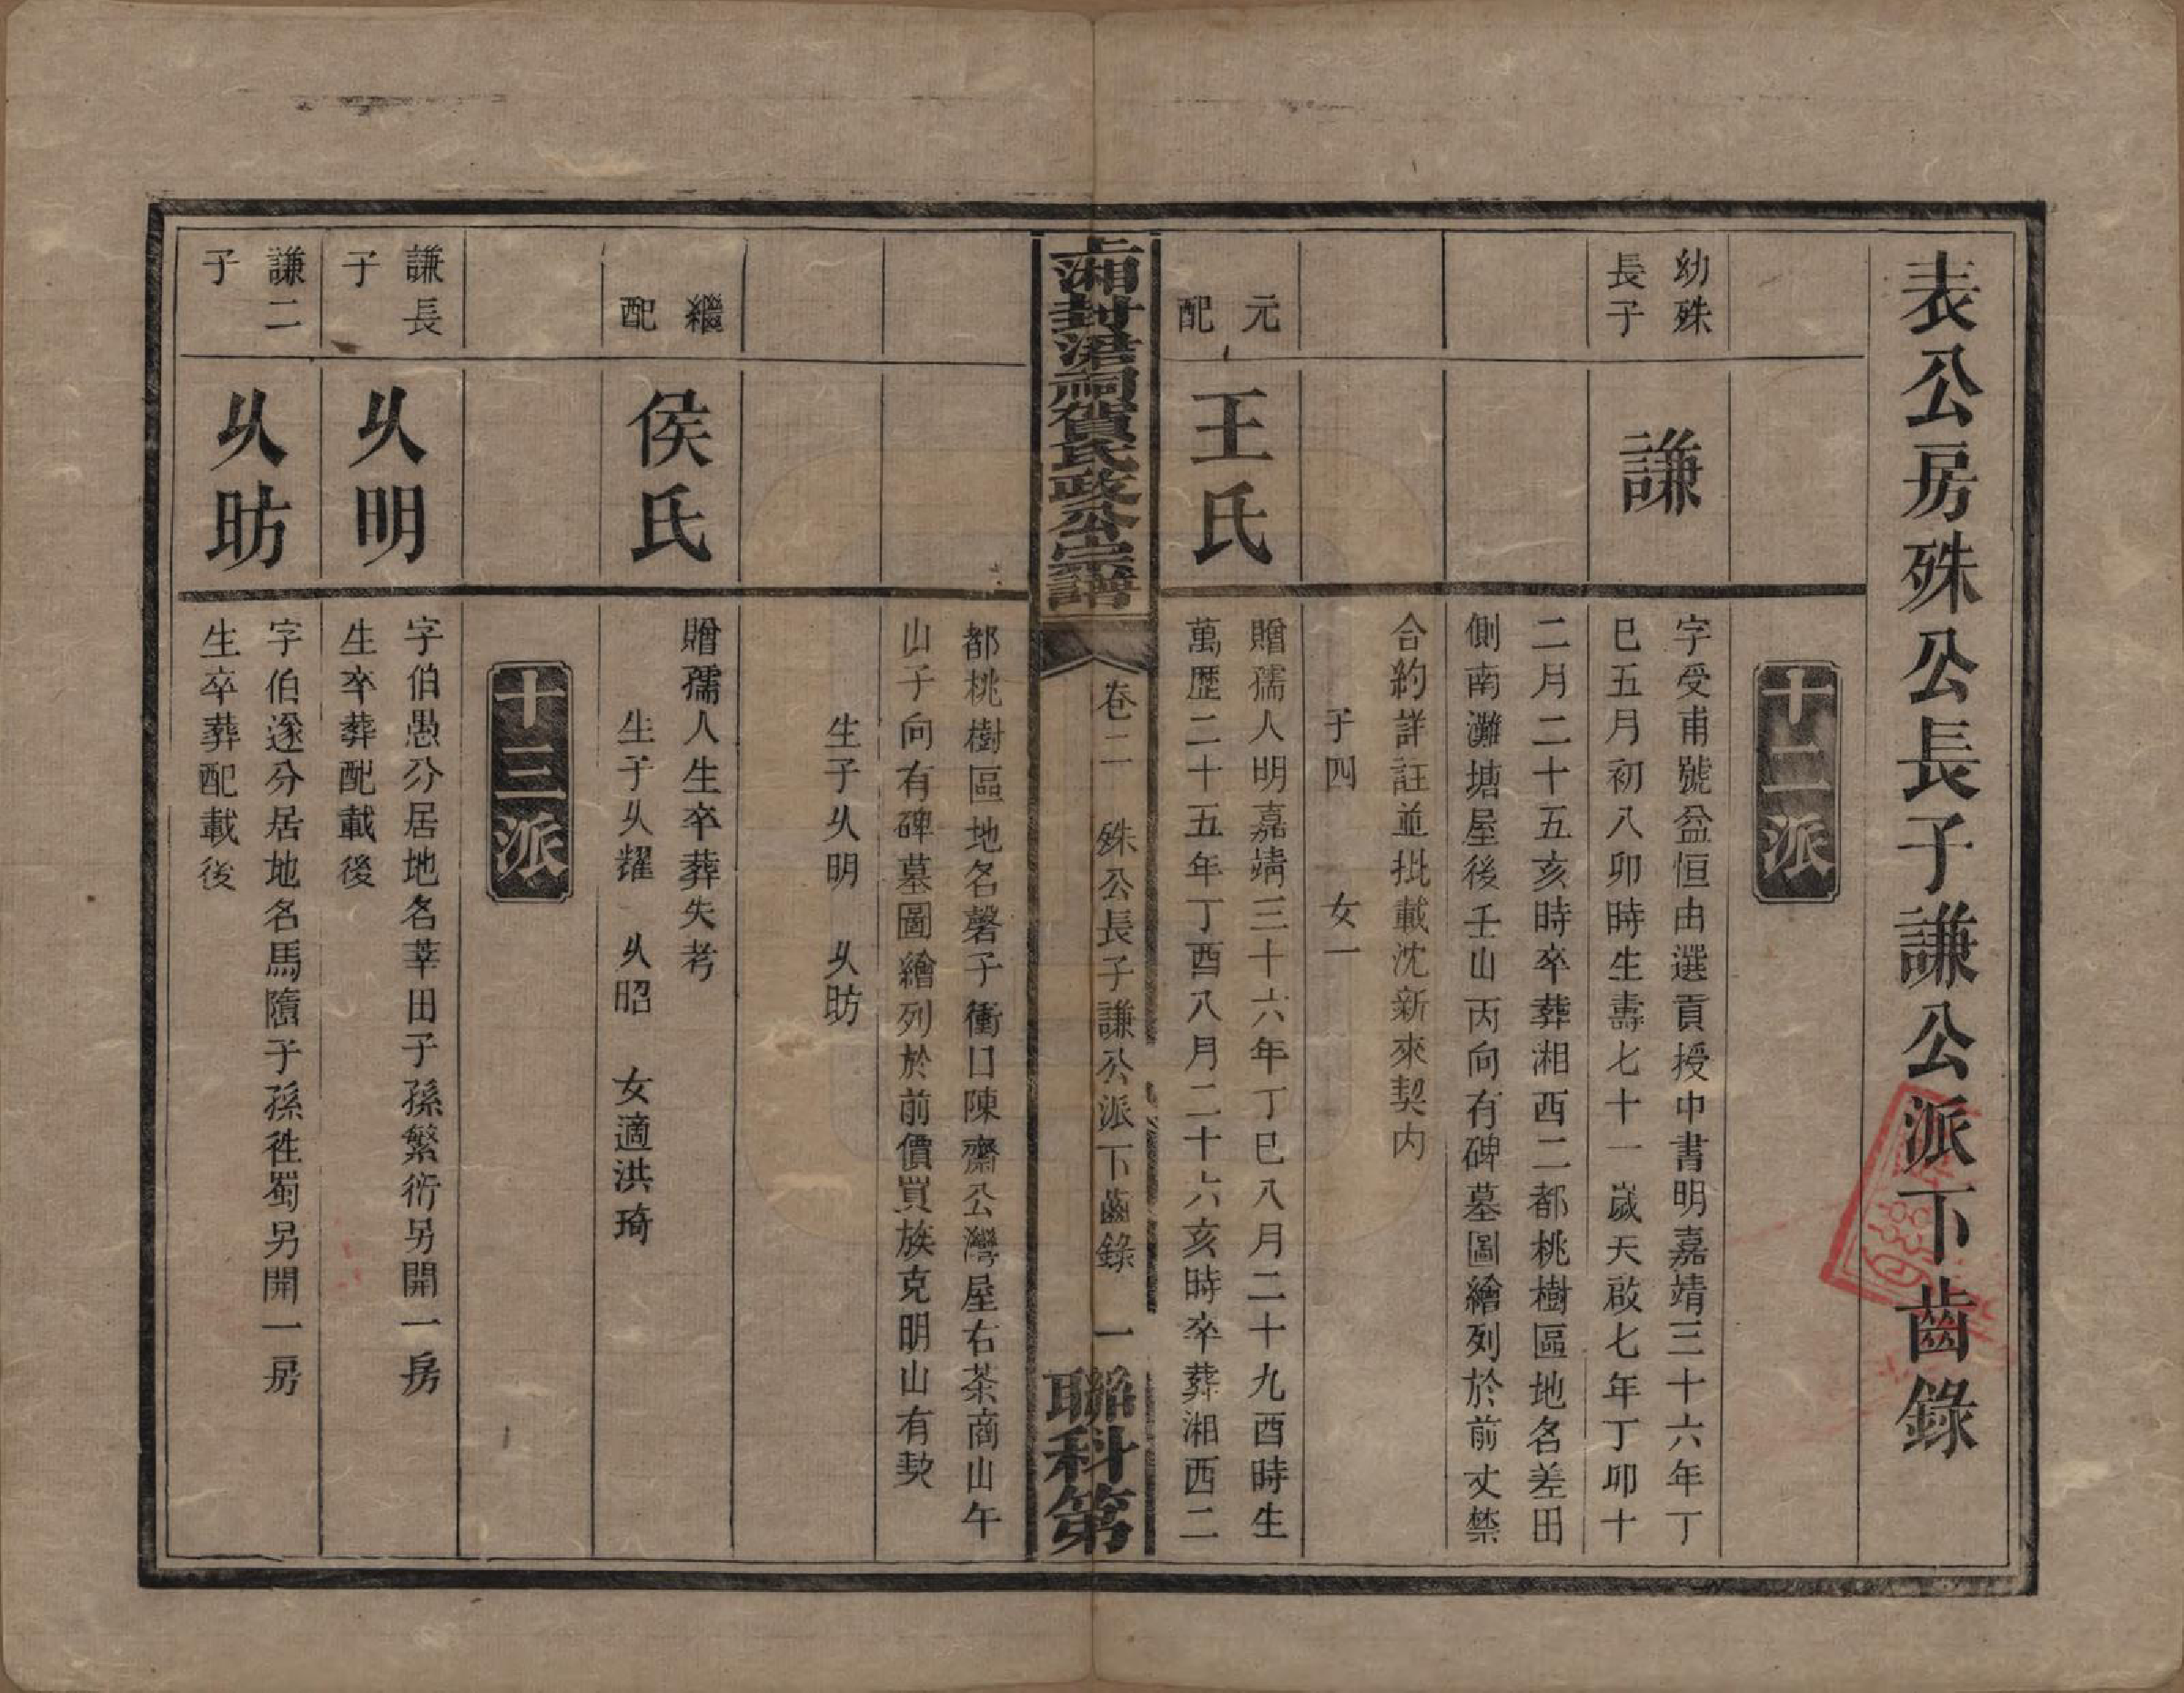 表公房殊公長子謙公派下齒錄
十二派
幼殊
長子
謙
字受甫號益恒由選貢授中書明嘉靖三十六年丁
巳五月初八卯時生壽七十一歲天啟七年丁卯十
二月二十五亥時卒葬湘西二都桃樹區地名差田
側南灘塘屋後壬山丙向有碑墓圖繪列於前丈禁
合約詳註並批載沈新來契内
子四 女一
元
配
王氏
贈孺人明嘉靖三十六年丁巳八月二十九酉時生
萬歷二十五年丁酉八月二十六亥時卒葬湘西二
上湘封涒祠賀氏政公宗譜
卷二 殊公長子謙公派下齒錄 一
聯科第
都桃樹區地名磬子衝口陳齋公灣屋右茶商山午
山子向有碑墓圖繪列於前價買族克明山有契
生子乆明 乆昉
繼
配
侯氏
贈孺人生卒葬失考
生子乆耀 乆昭 女適洪琦
十三派
謙長
子
乆明
字伯愚分居地名莘田子孫繁衍另開一房
生卒葬配載後
謙二
子
乆昉
字伯遂分居地名馬隋子孫徃蜀另開一房
生卒葬配載後